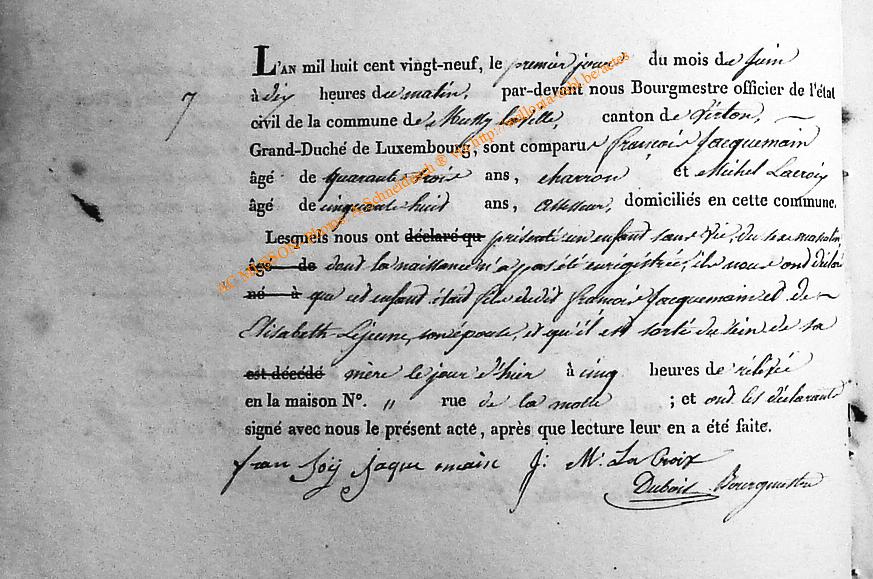 L'AN mil huit cent vingt-neuf, le premier jour du mois de Juin
7 à dix heures du matin, par-devant nous Bourgmestre officier de l'état
civil de la commune de Mussy la ville, canton de Virton,
Grand-Duché de Luxembourg, sont comparus françois Jacquemain
âgé de quarante trois ans, charron et Michel Lacroix
âgé de cinquante huit ans, assesseur, domiciliés en cette commune.
Lesquels nous ont déclaré qu présenté un enfant sans vie, du sexe masculin
âgé de dont la naissance n'a pas été enrégistrée, ils nous ont déclaré
né à que cet enfant était fils du dit françois Jacquemain et de
Elisabeth Lejeune, son épouse, et qu'il est sorti du sein de sa
est décédé mère le jour d'hier à cinq heures de rélévée
en la maison N°. " rue de la motte ; et ont les déclarants
signé avec nous le présent acte, après que lecture leur en a été faite.
fran soij jaque main J. M. La Croix
Dubois Bourgmestre
AC MUSSON Photos A Schneiderich ® via http://wallonia-asbl.be/actes